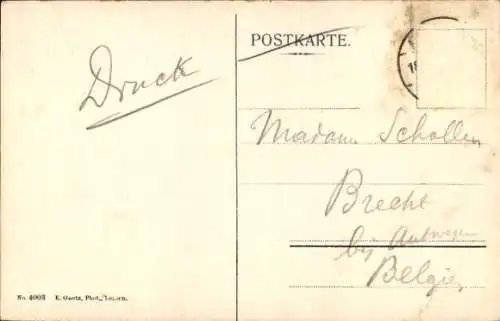 Druck
POSTKARTE.
Madame Schollen
Brecht
bij Antwerpen
Belgien
No. 4003 E. Goetz, Phot., Luzern.